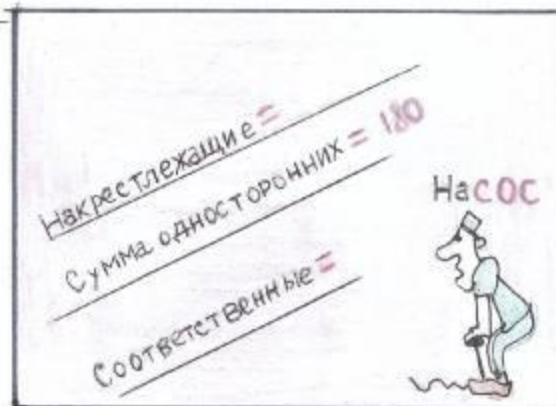 Накрестлежащие =
Сумма односторонних = 180
Соответственные =
НаСОС